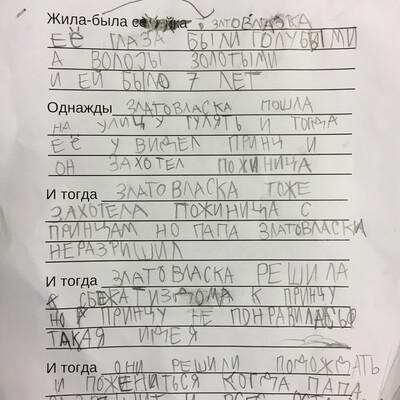 Жила-была златовласка
ЕЁ ГЛАЗА БЫЛИ ГОЛУБЫМИ
А ВОЛОСЫ ЗОЛОТЫМИ
И ЕЙ БЫЛО 7 ЛЕТ
Однажды ЗЛАТОВЛАСКА ПОШЛА
НА УЛИЦУ ГУЛЯТЬ И ТОГДА
ЕЁ УВИДЕЛ ПРИНЦ И
ОН ЗАХОТЕЛ ПОЖИНИЦА
И тогда ЗЛАТОВЛАСКА ТОЖЕ
ЗАХОТЕЛА ПОЖИНИЦА С
ПРИНЦАМ НО ПАПА ЗЛАТОВЛАСКИ
НЕРАЗРИШИЛ
И тогда ЗЛАТОВЛАСКА РЕШИЛА
СБЕЖАТ ИЗ ДОМА К ПРИНЦУ
НО ПРИНЦУ НЕ ПОНРАВИЛАСЬ
ТАКАЯ ИДЕЯ
И тогда ОНИ РЕШИЛИ ПОДОЖДАТЬ
И ПОЖЕНИТЬСЯ КОГДА ПАПА